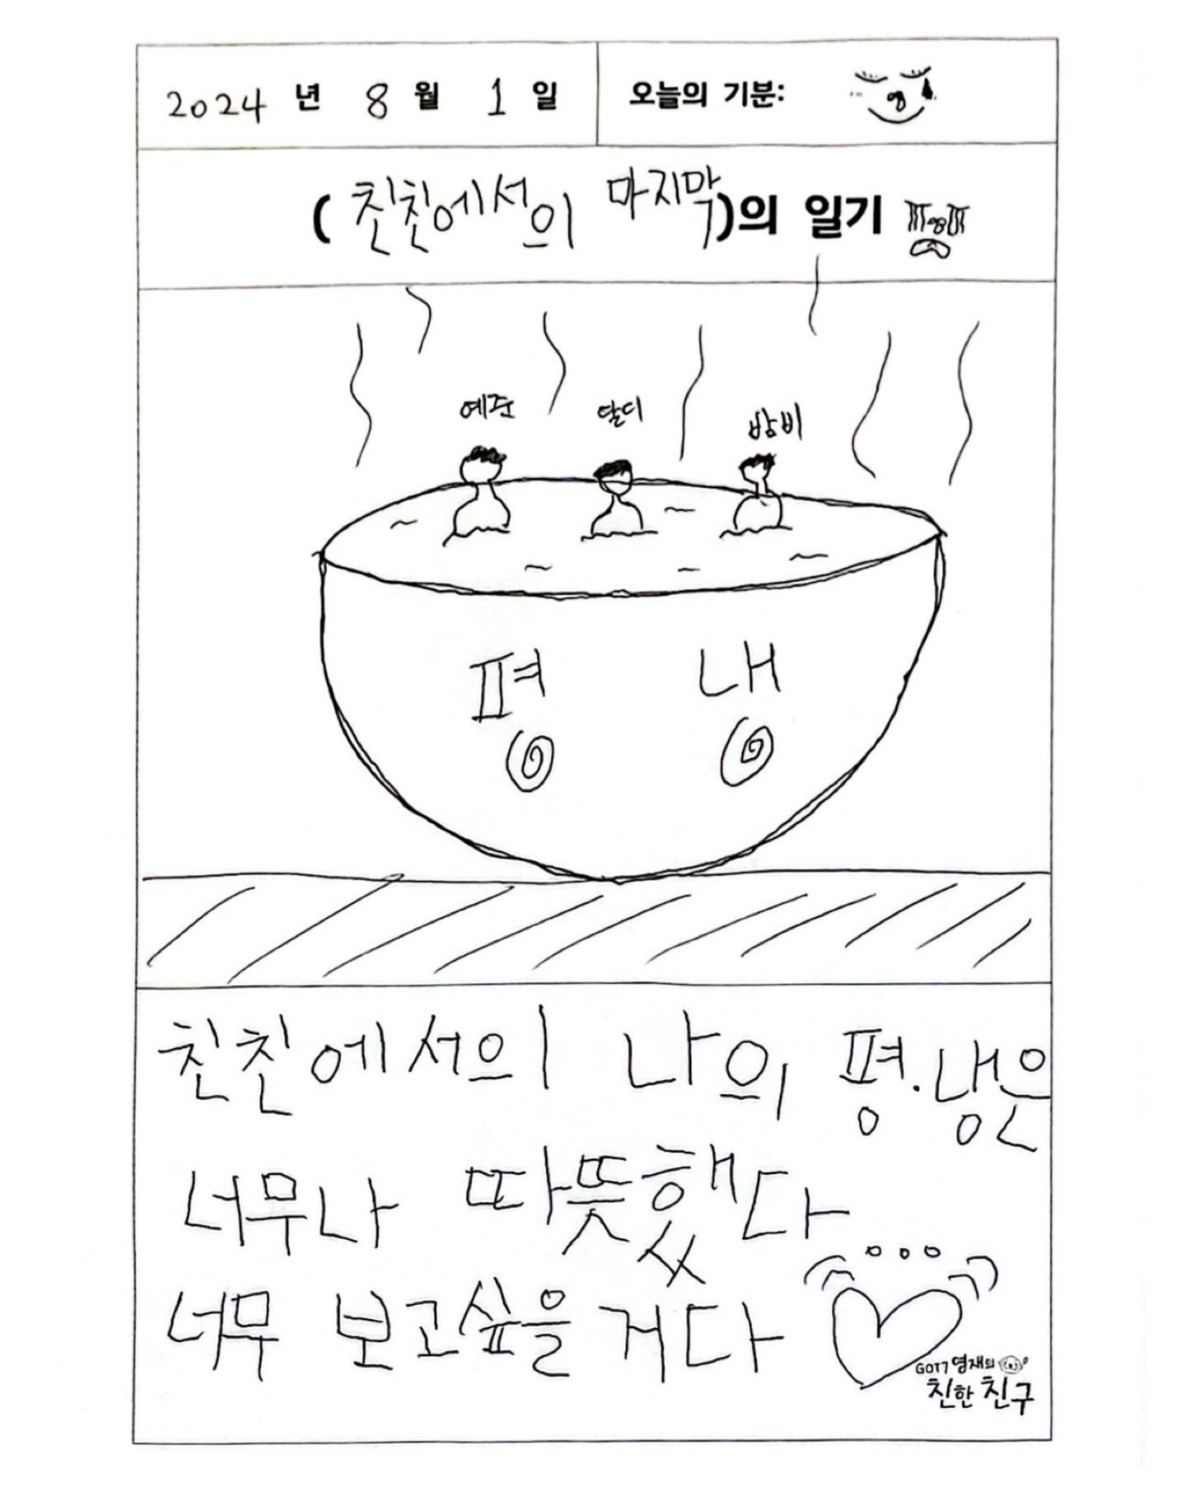 2024 년 8 월 1 일
오늘의 기분:
(친친에서의 마지막)의 일기
예준
달디
밤비
평 냉
친친에서의 나의 평.냉은
너무나 따뜻했다
너무 보고싶을 거다
GOT7 영재의
친한친구